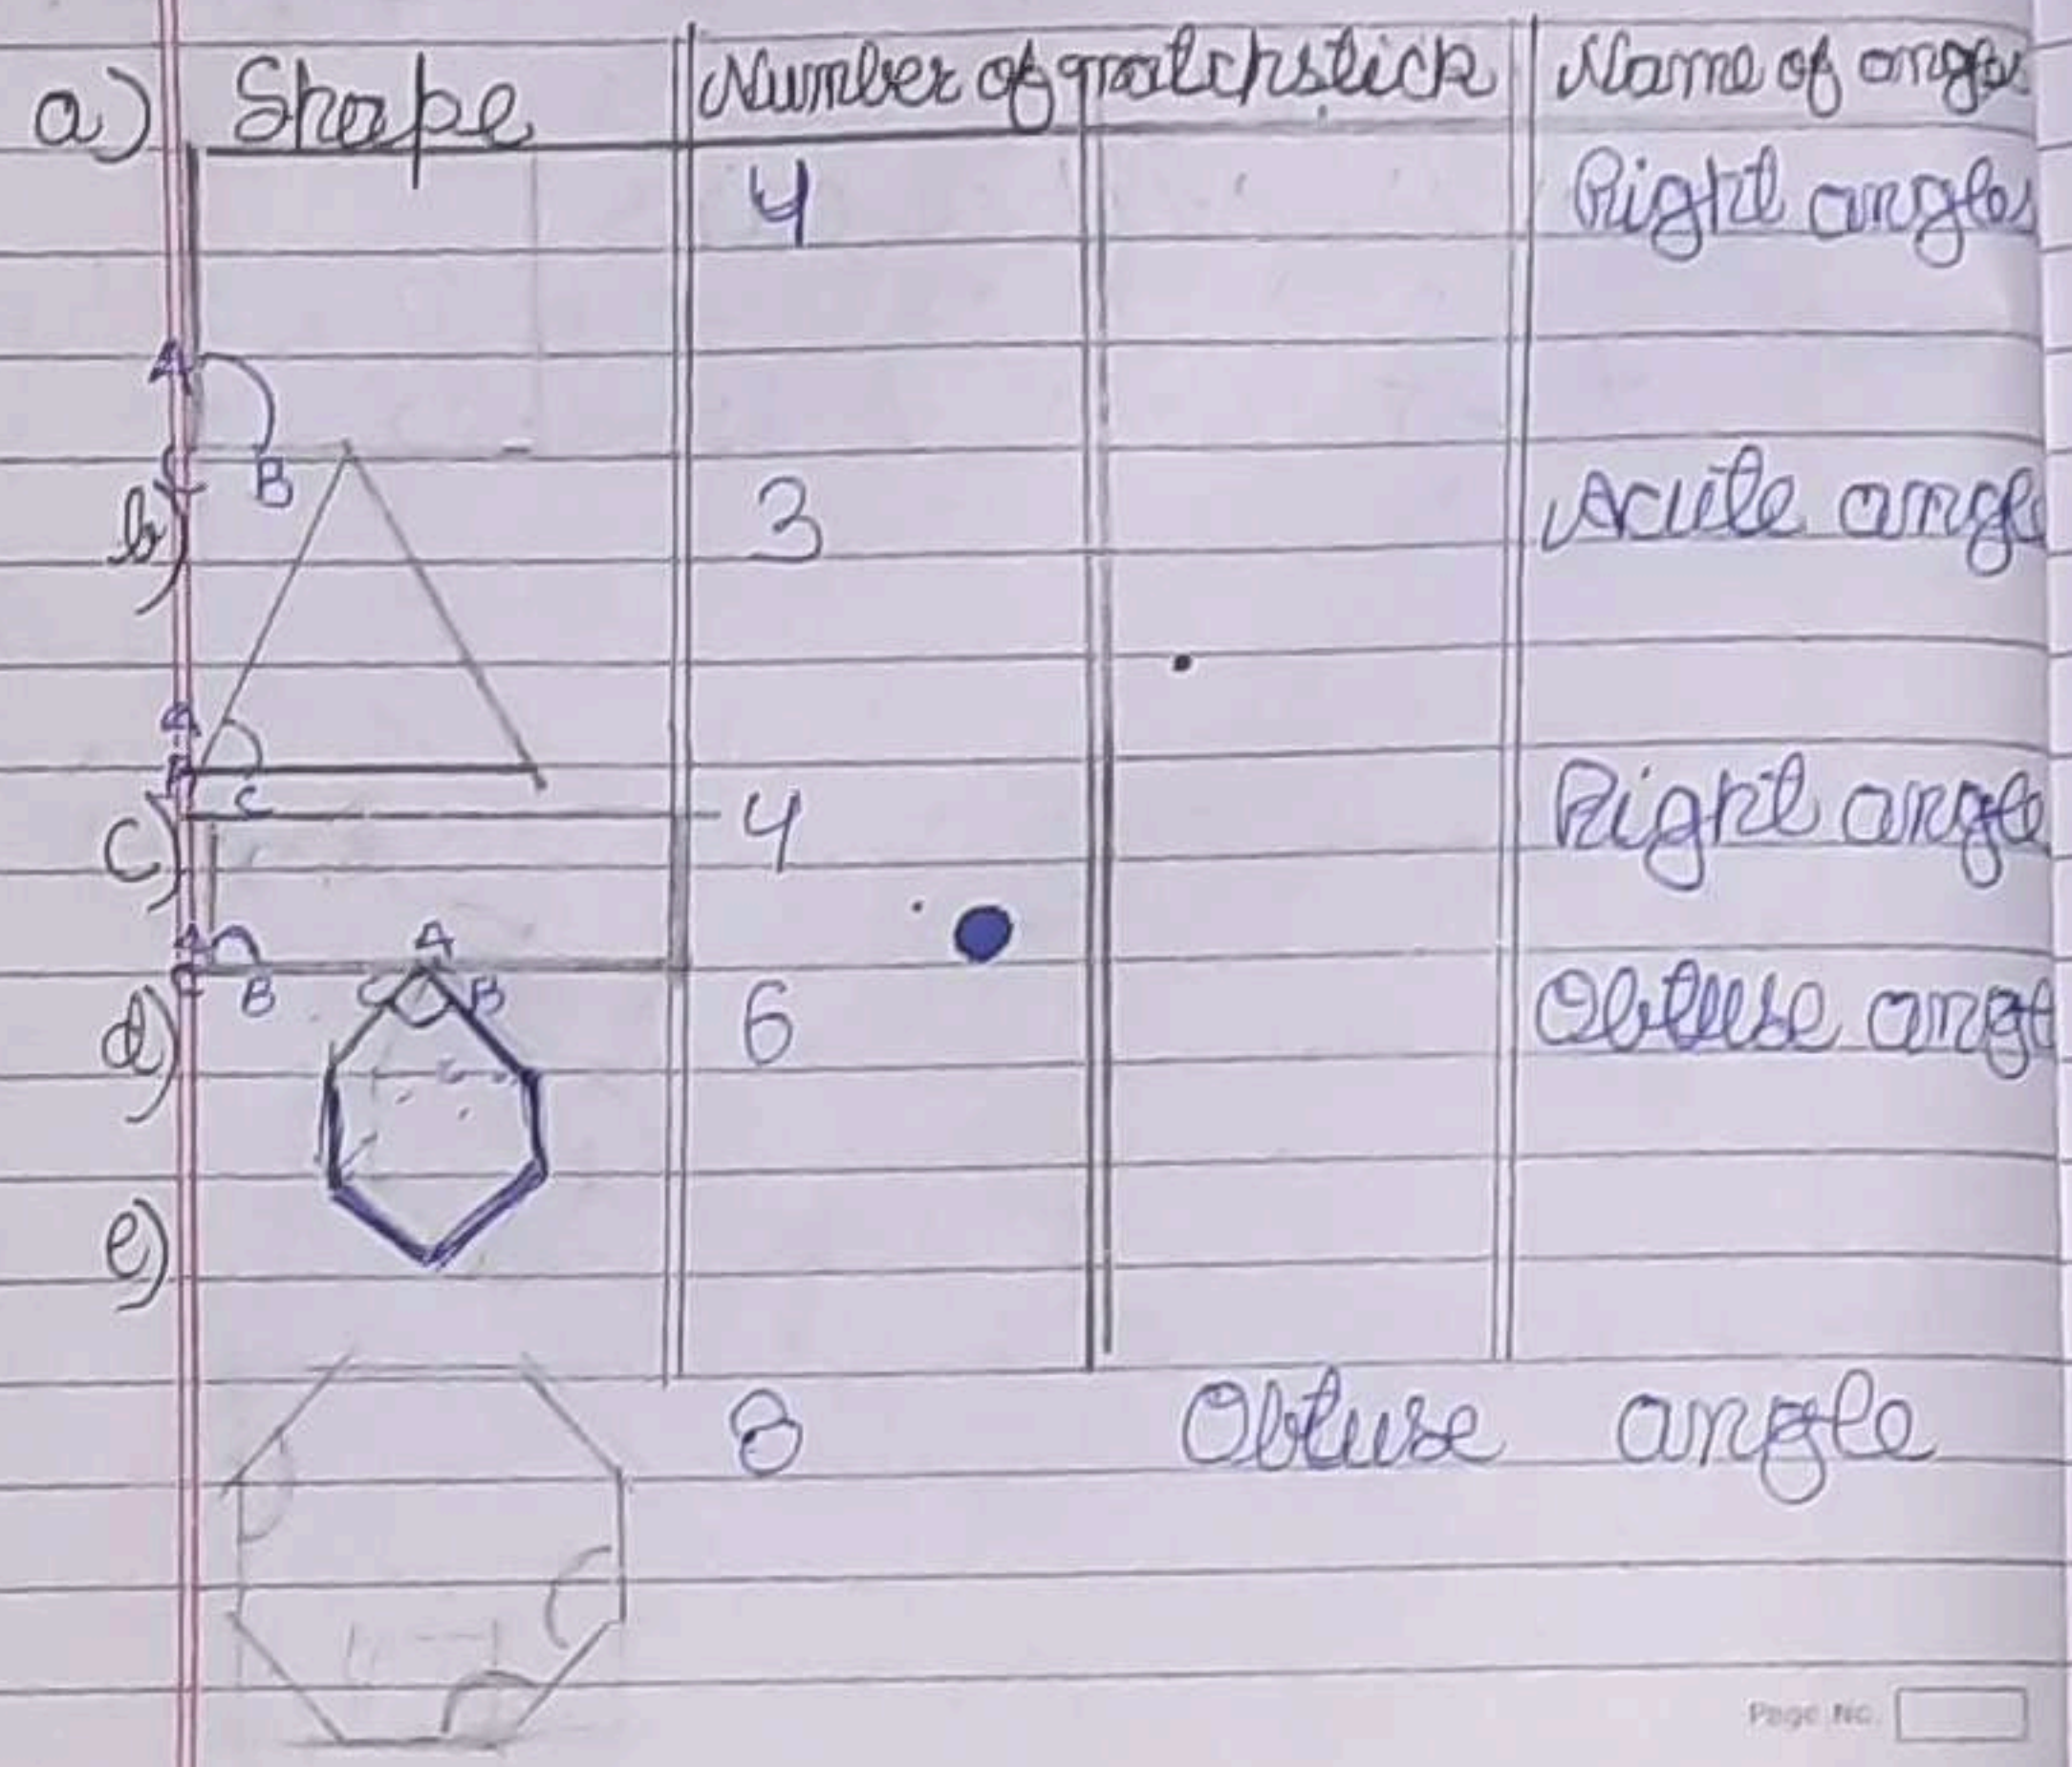 a) Shape Number of matchstick Name of angles
4 Right angles
A
C B
b) 3 Acute angle
A
B C
c) 4 Right angle
A A
C B C B
d) 6 Obtuse angl
e)
8 Obtuse angle
Page No.